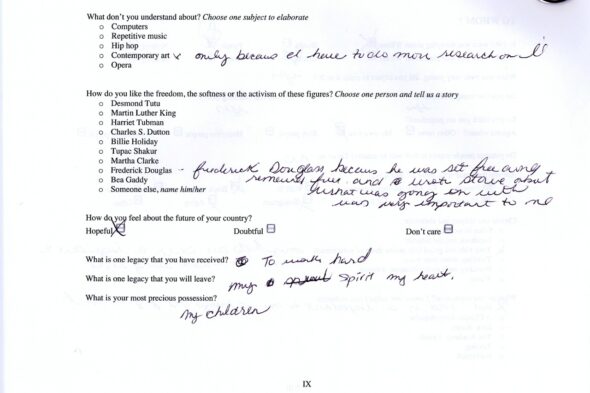 What don't you understand about? Choose one subject to elaborate
o Computers
o Repetitive music
o Hip hop
o Contemporary art x only becaus I have to do more research on it
o Opera
How do you like the freedom, the softness or the activism of these figures? Choose one person and tell us a story
o Desmond Tutu
o Martin Luther King
o Harriet Tubman
o Charles S. Dutton
o Billie Holiday
o Tupac Shakur
o Martha Clarke
o Frederick Douglas - frederick Douglass becaus he was set free
o Bea Gaddy free and wrote about
o Someone else, name him/her what was going on with
was very important to me
How do you feel about the future of your country?
Hopeful X Doubtful Don't care
What is one legacy that you have received? To work hard
What is one legacy that you will leave? my spirit my heart.
What is your most precious possession?
My children
IX